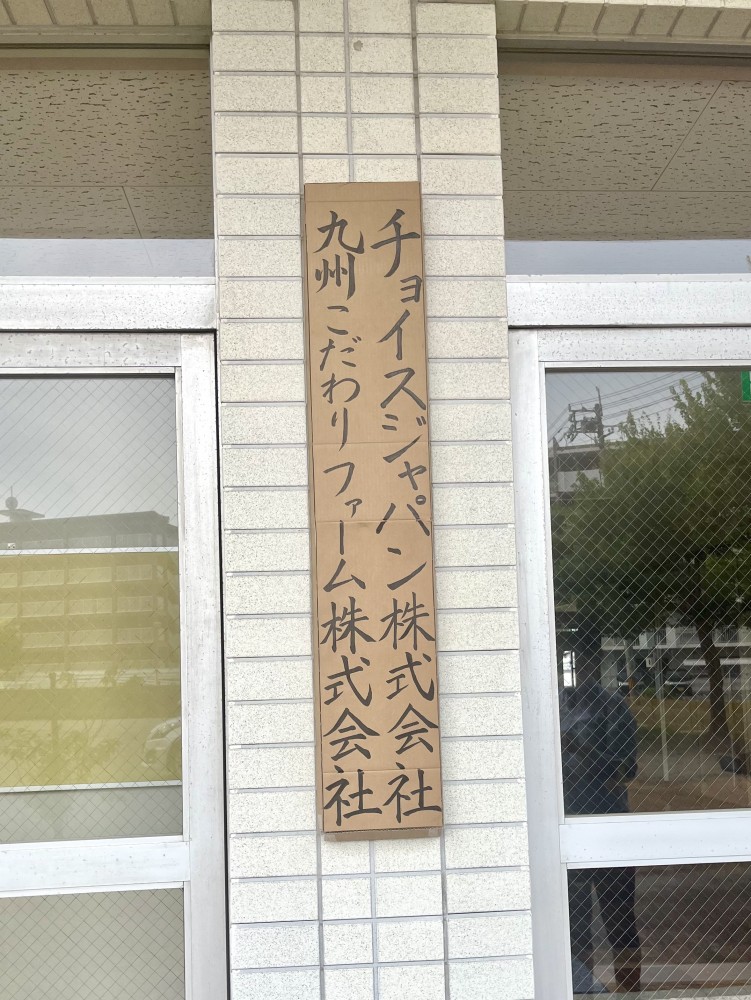 チョイスジャパン株式会社
九州こだわりファーム株式会社